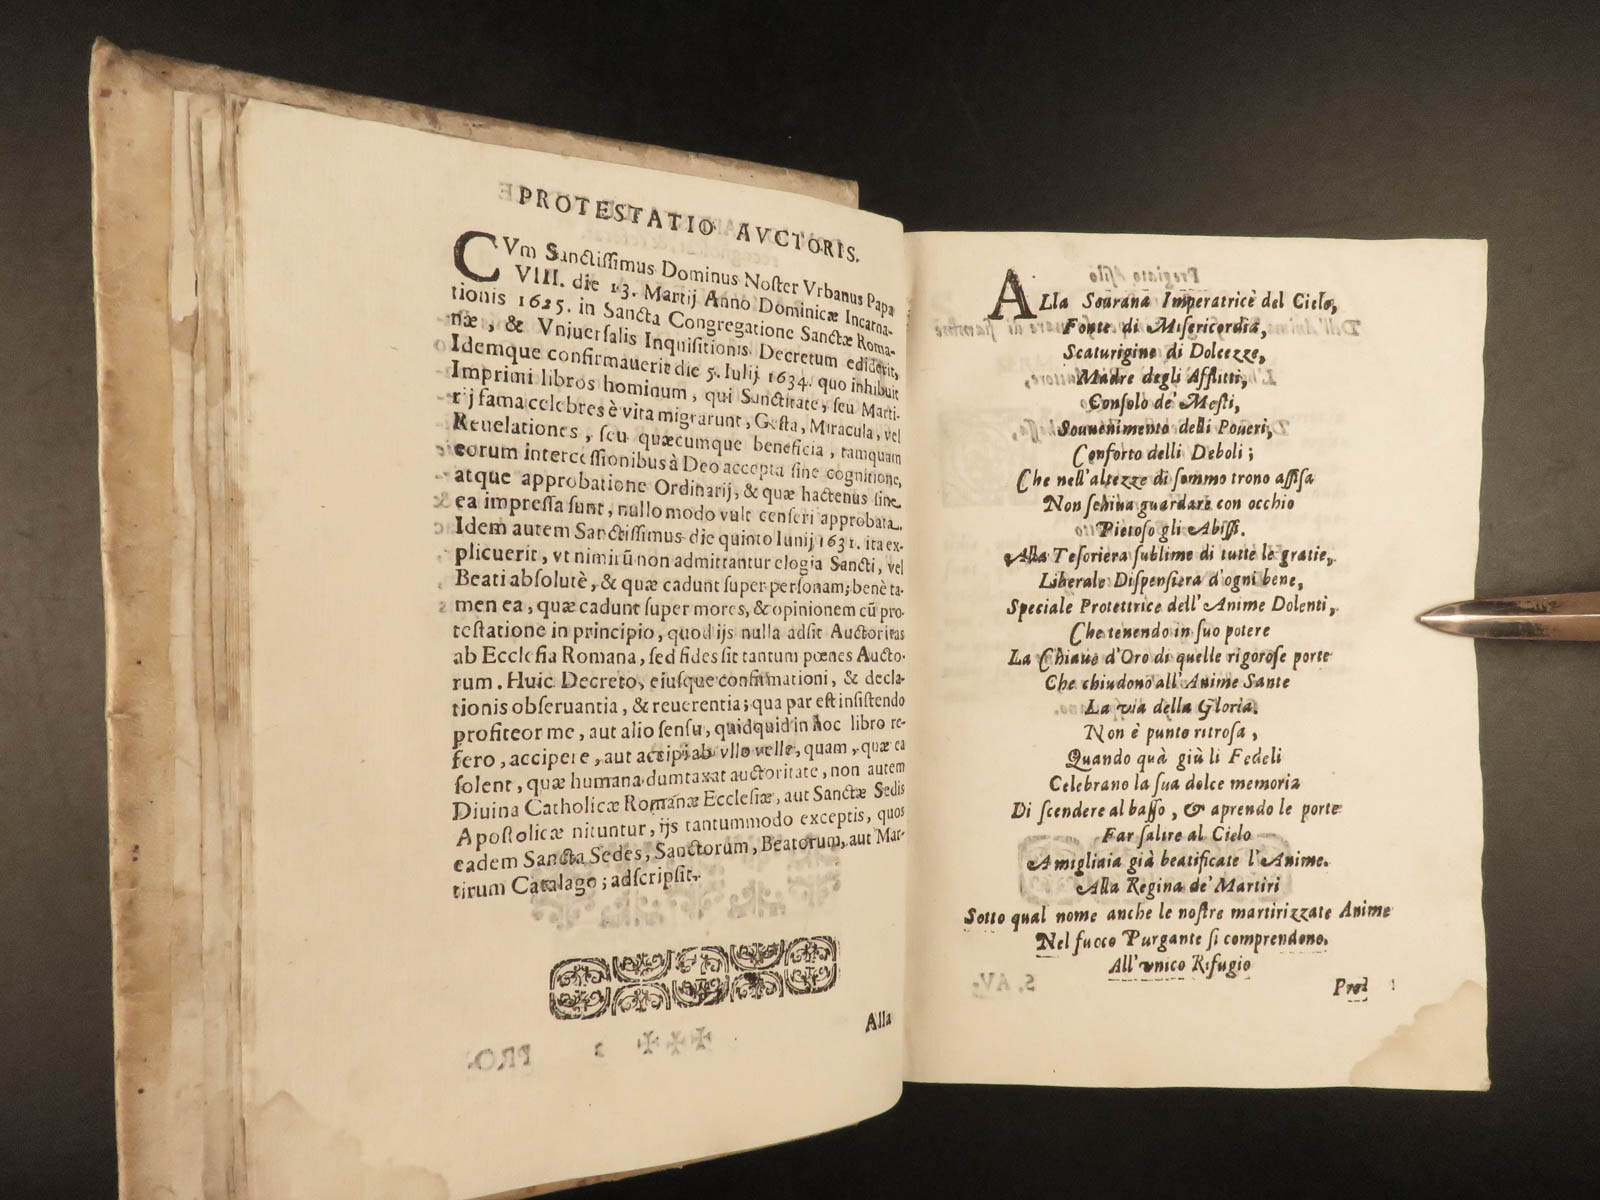 PROTESTATIO AVCTORIS.
CVm Sanctissimus Dominus Noster Vrbanus Papa
VIII. die 13. Martij Anno Dominicæ Incarna-
tionis 1625. in Sancta Congregatione Sanctæ Roma-
næ, & Vnjuersalis Inquisitionis Decretum ediderit,
Idemque confirmauerit die 5. Iulij 1634. quo inhibuit
Imprimi libros hominum, qui Sanctitate, seu Marti-
rij fama celebres è vita migrarunt, Gesta, Miracula, vel
Reuelationes, seu quæcumque beneficia, tamquam
eorum intercessionibus à Deo accepta sine cognitione,
atque approbatione Ordinarij, & quæ hactenus sine
ea impressa sunt, nullo modo vult censeri approbata.
Idem autem Sanctissimus die quinto Iunij 1631. ita ex-
plicuerit, vt nimirũ non admittantur elogia Sancti, vel
Beati absolutè, & quæ cadunt super personam; benè ta-
men ea, quæ cadunt super mores, & opinionem cũ pro-
testatione in principio, quod ijs nulla adsit Auctoritas
ab Ecclesia Romana, sed fides sit tantum pœnes Aucto-
rum. Huic Decreto, eiusque confirmationi, & decla-
tionis obseruantia, & reuerentia; qua par est insistendo
profiteor me, aut alio sensu, quidquid in hoc libro re-
fero, accipere, aut accipi ab vllo velle, quam, quæ ea
solent, quæ humana dumtaxat auctoritate, non autem
Diuina Catholicæ Romanæ Ecclesiæ, aut Sanctæ Sedis
Apostolicæ nituntur, ijs tantummodo exceptis, quos
eadem Sancta Sedes, Sanctorum, Beatorum, aut Mar-
tirum Catalago; adscripsit.
Alla
ALla Sourana Imperatrice del Cielo,
Fonte di Misericordia,
Scaturigine di Dolcezze,
Madre degli Afflitti,
Consolo de' Mesti,
Souuenimento delli Poueri,
Conforto delli Deboli;
Che nell'altezze di sommo trono assisa
Non schiua guardare con occhio
Pietoso gli Abissi.
Alla Tesoriera sublime di tutte le gratie,
Liberale Dispensiera d'ogni bene,
Speciale Protettrice dell'Anime Dolenti,
Che tenendo in suo potere
La Chiaue d'Oro di quelle rigorose porte
Che chiudono all'Anime Sante
La via della Gloria.
Non è punto ritrosa,
Quando quà giù li Fedeli
Celebrano la sua dolce memoria
Di scendere al basso, & aprendo le porte
Far salire al Cielo
A migliaia già beatificate l'Anime.
Alla Regina de' Martiri
Sotto qual nome anche le nostre martirizzate Anime
Nel fuoco Purgante si comprendono.
All'vnico Rifugio